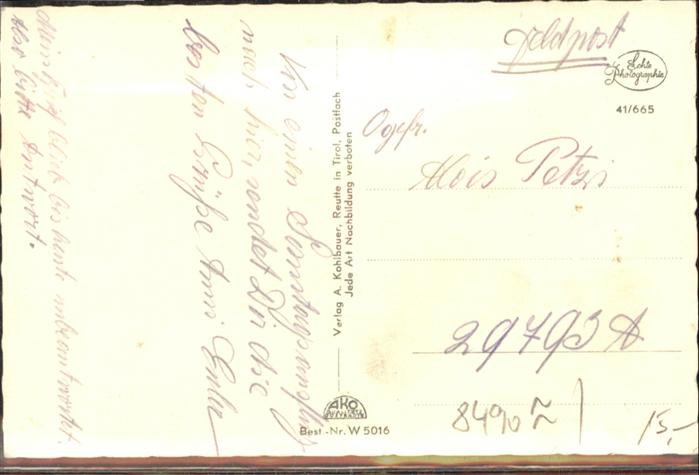 Von einem Sonntagsausflug
nach hier, sendet Dir die
besten Grüße Anni
Mein Brief blieb bis heute unbeantwortet.
Also bitte Antwort.
Verlag A. Kohlbauer, Reutte in Tirol, Postfach
Jede Art Nachbildung verboten
AKO
Best.-Nr. W 5016
Feldpost
Echte
Photographie
41/665
Ogefr.
Alois
29793 A
8490
15,-